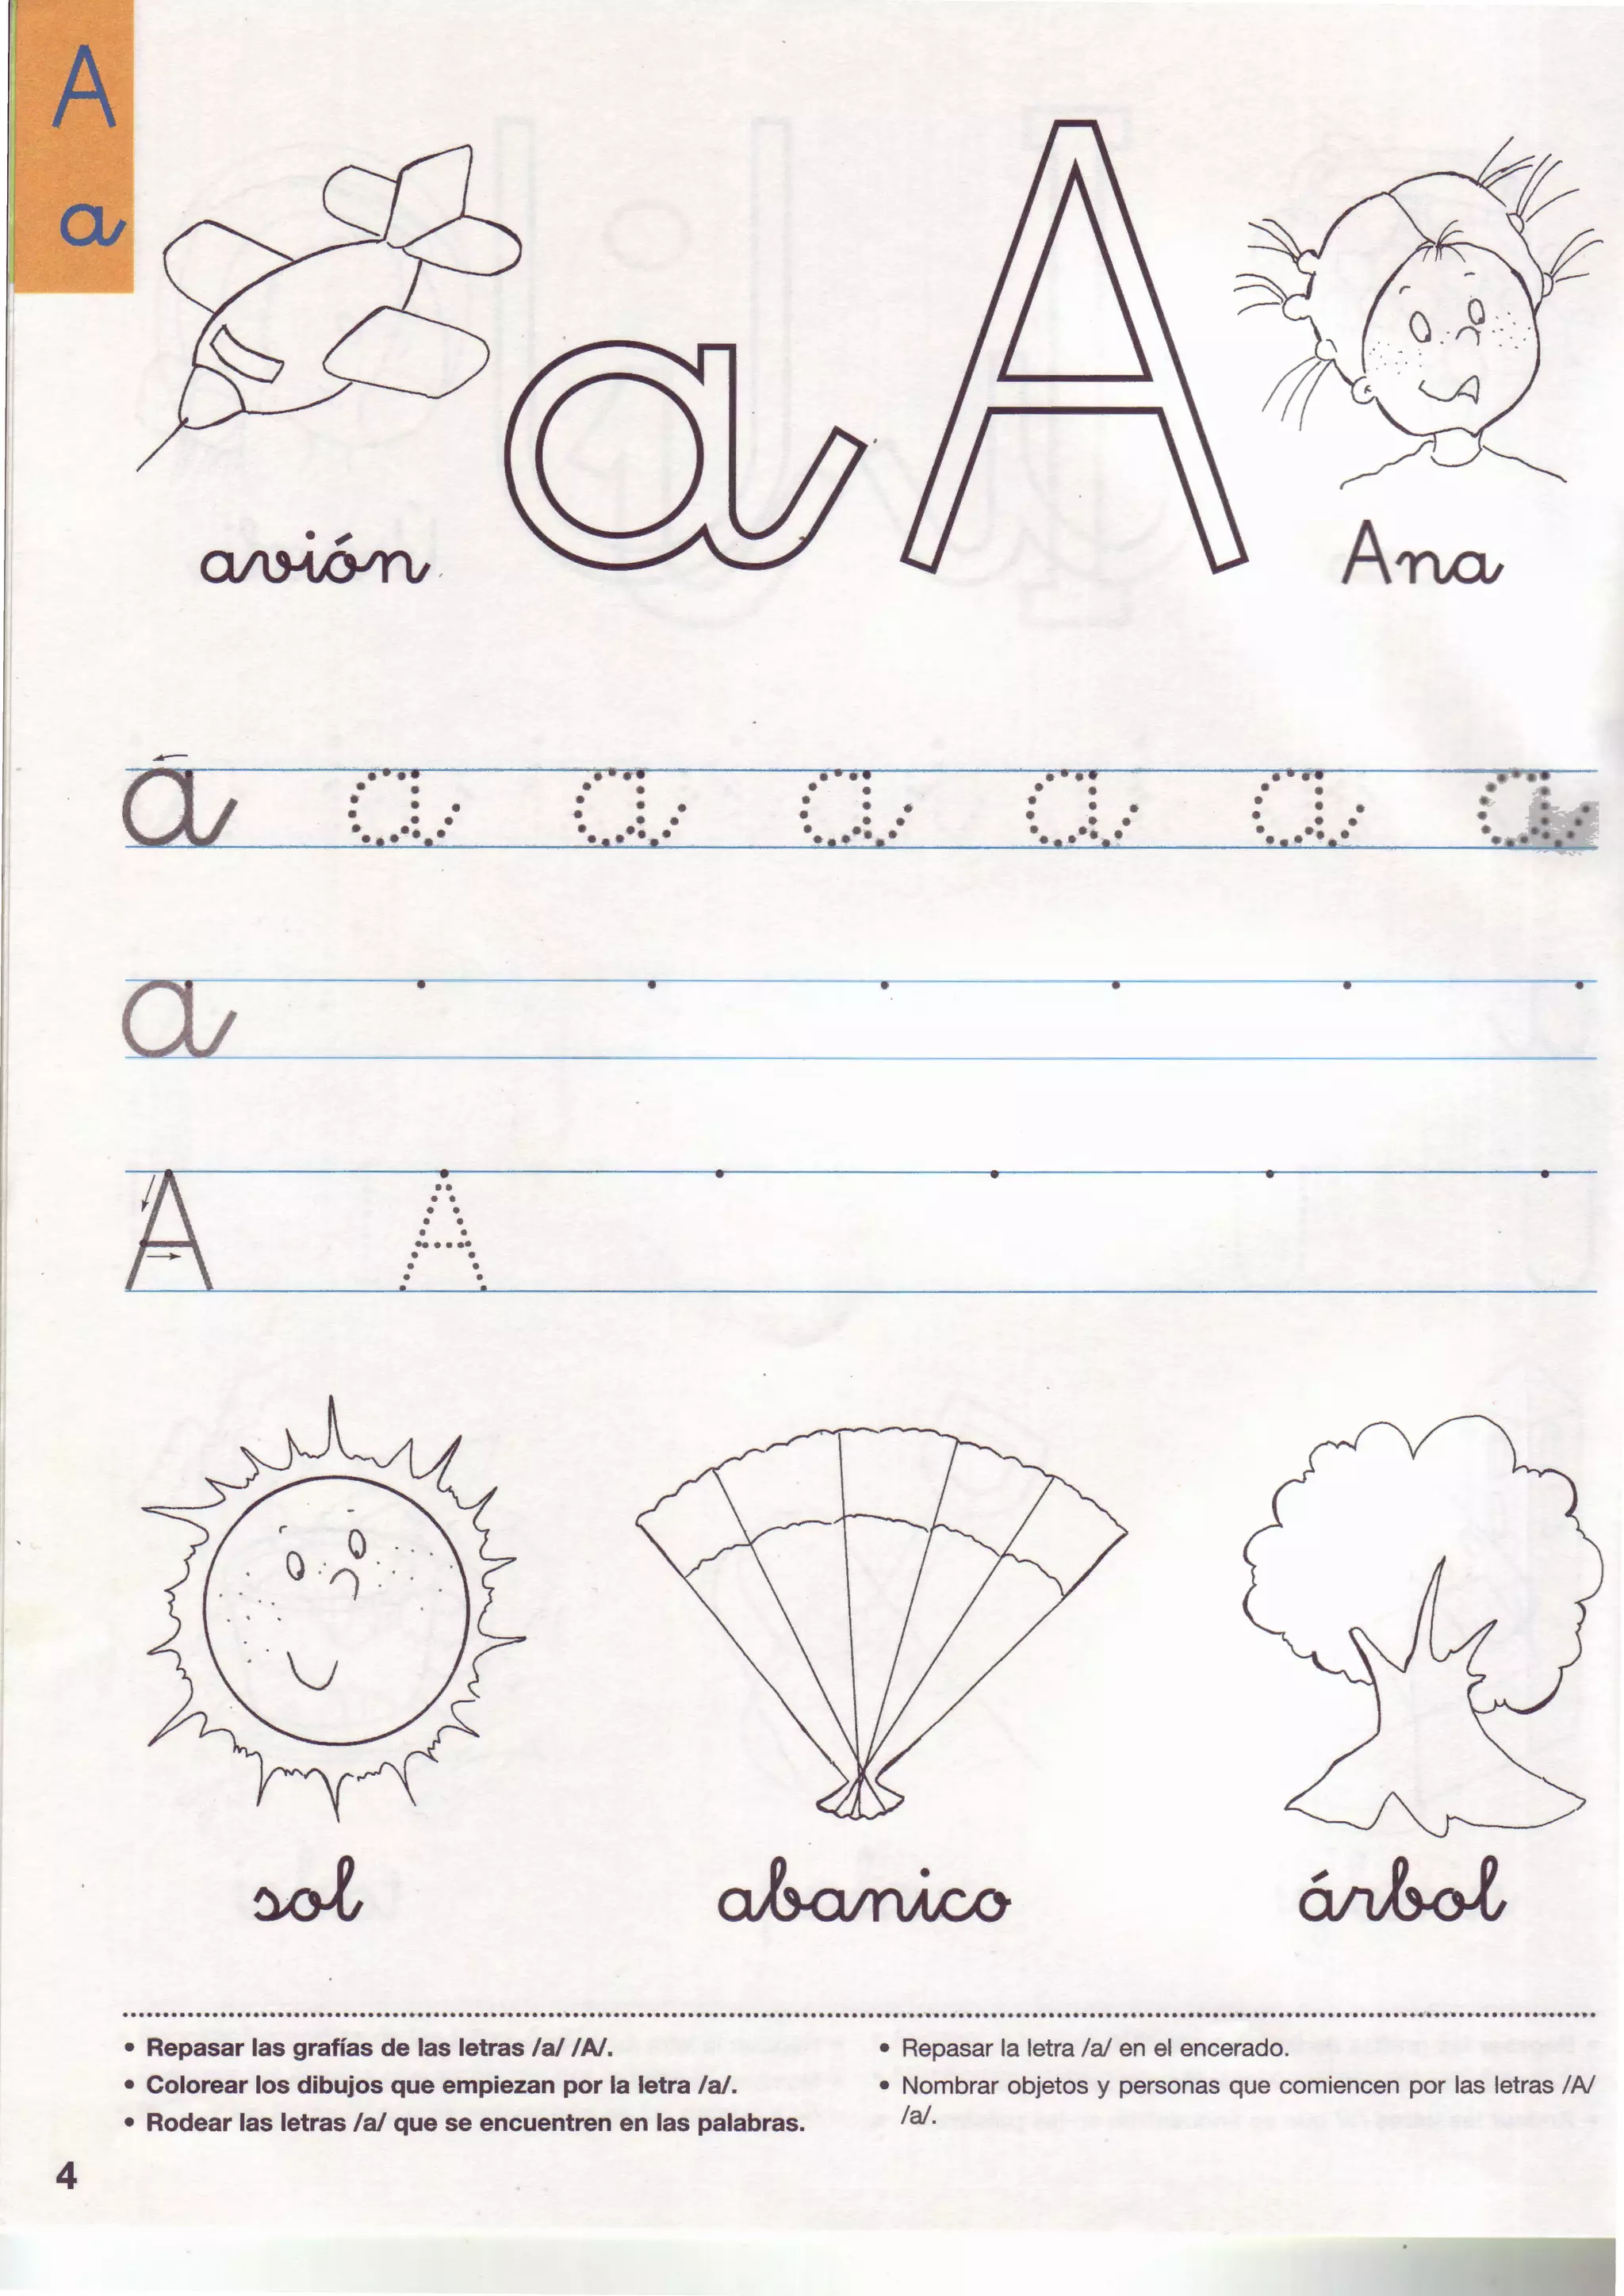 A
a
a A
avión
Ana
a a a a a a a
a
A A
sol
abanico
árbol
• Repasar las grafías de las letras /a/ /A/.
• Colorear los dibujos que empiezan por la letra /a/.
• Rodear las letras /a/ que se encuentren en las palabras.
• Repasar la letra /a/ en el encerado.
• Nombrar objetos y personas que comiencen por las letras /A/
/a/.
4